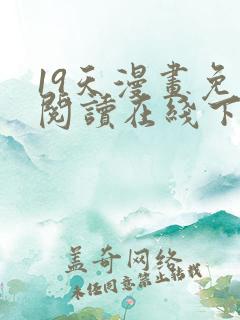 19天漫畫免
閱讀在线下
盖奇网络
未经同意禁止转载